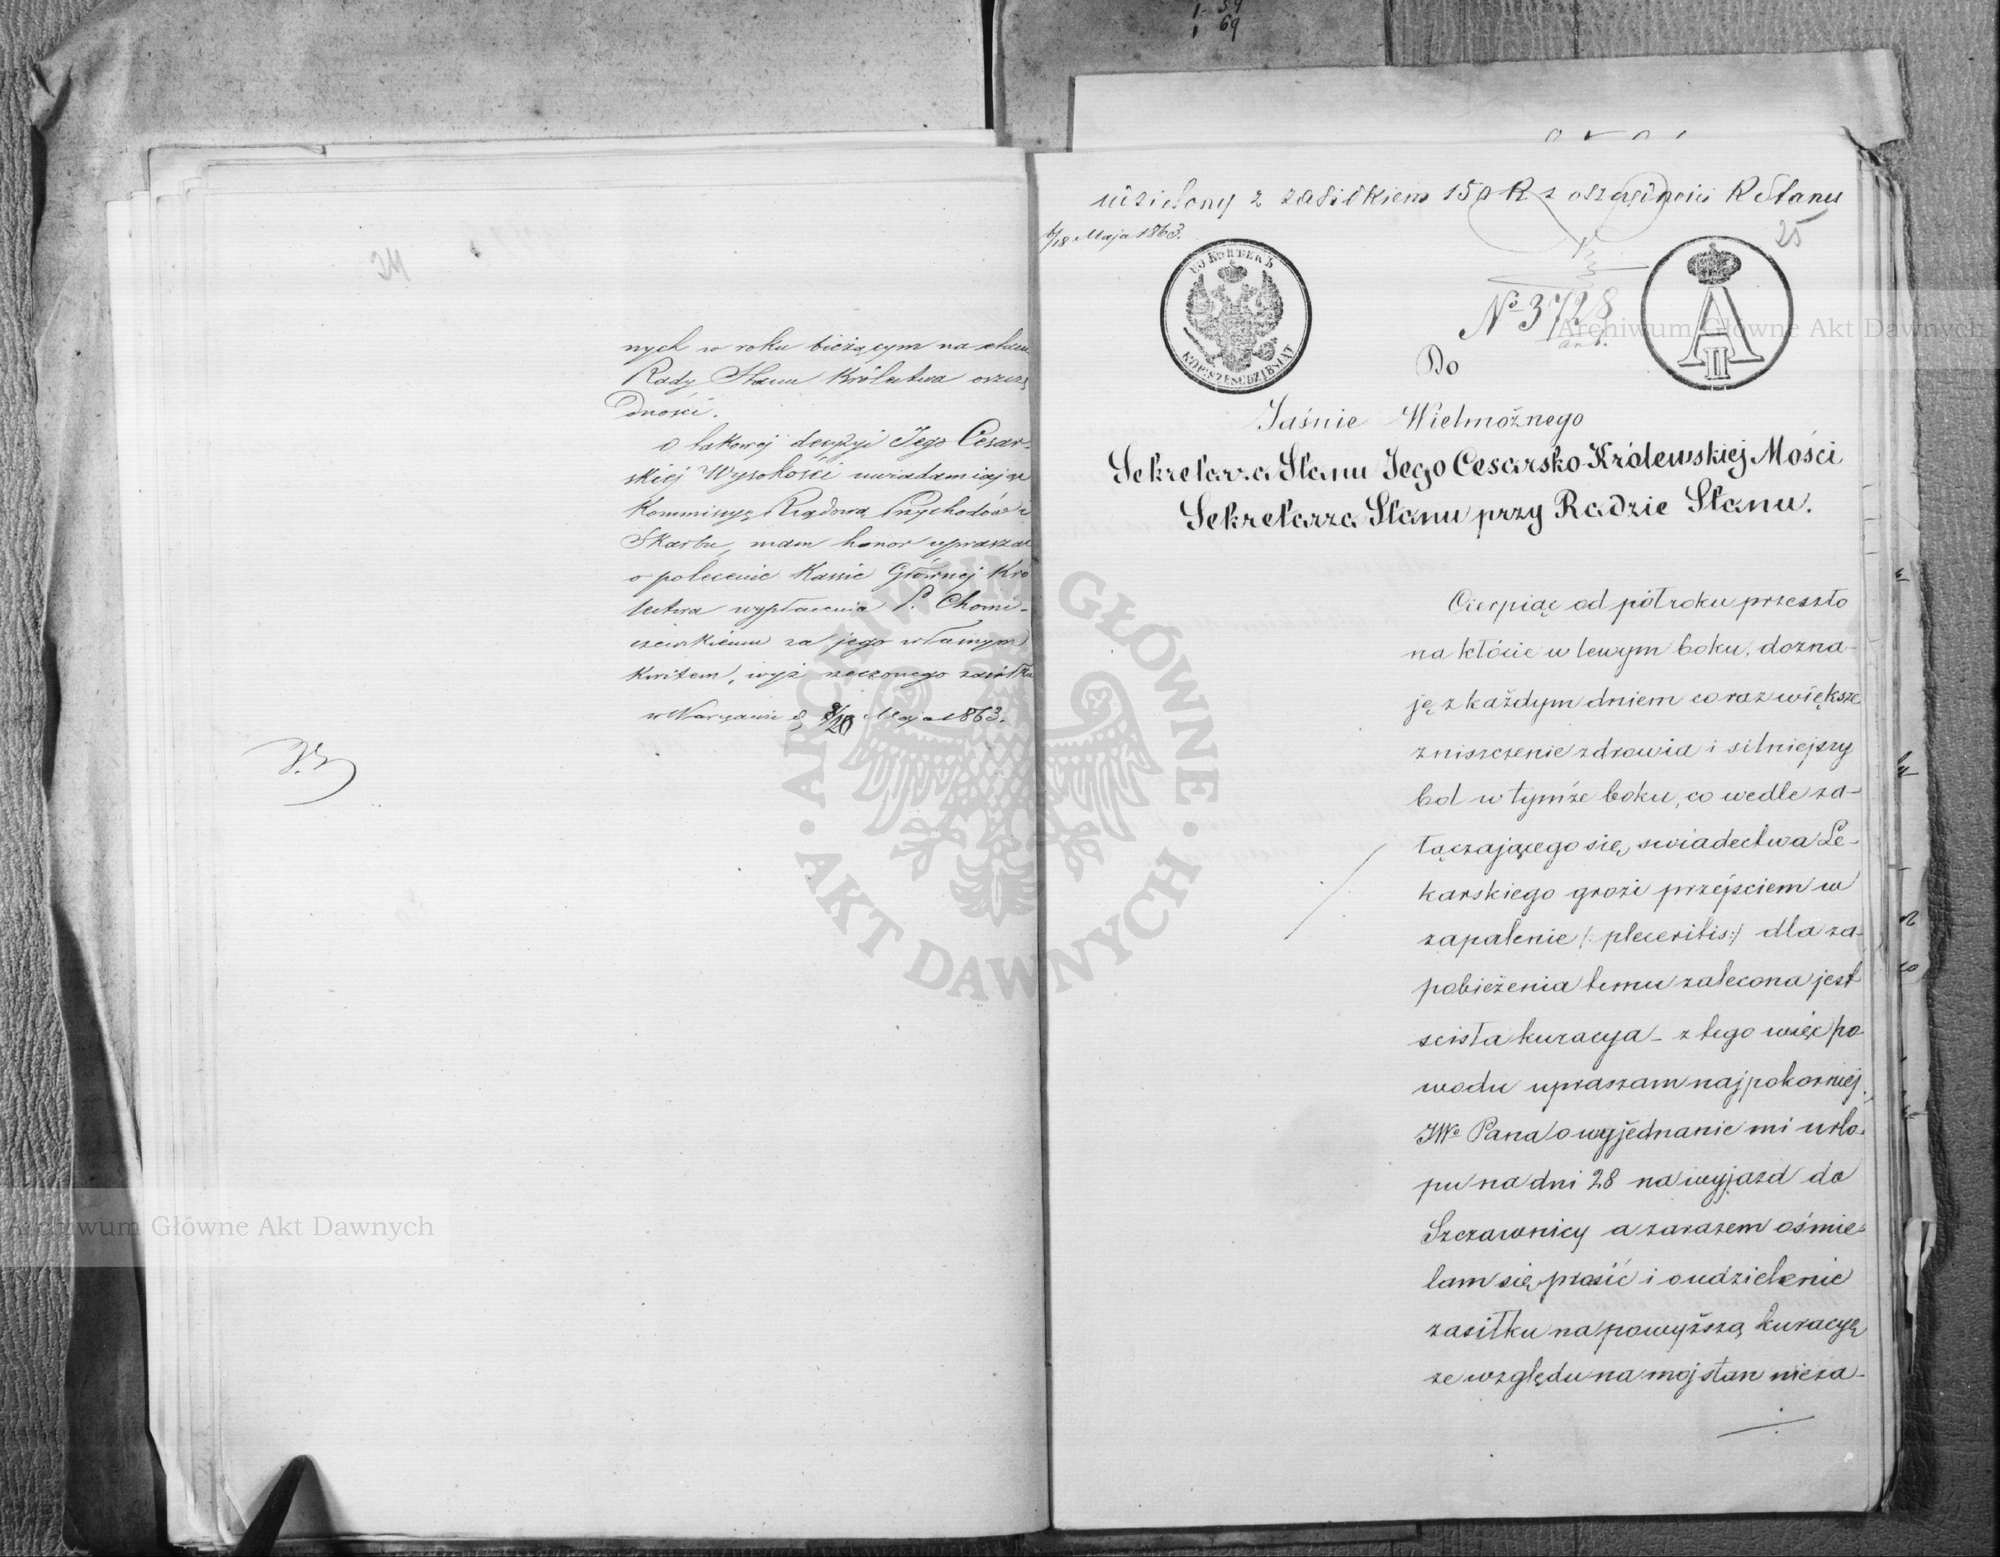 1 59
1 69
nych w roku bieżącym na etacie
Rady Stanu Królestwa oszczę
dności.
O takowej decyzyi Jego Cesar-
skiéj Wysokości uwiadamiając
Kommissyę Rządową Przychodów i
Skarbu, mam honor upraszać
o polecenie Kassie Głównej Kró
lestwa wypłacenia P. Chomi-
czewskiemu za jego własnym
kwitem, wyż rzeczonego zasiłku
w Warszawie d. 8/20 Maja 1863.
udzielony z zasiłkiem 150 R z oszczędności R Stanu
6/18 Maja 1863.
25
60 КОПѢЕКЪ
KOP: SZEŚĆDZIESIĄT
A II
No 3728
Do
Jaśnie Wielmożnego
Sekretarza Stanu Jego Cesarsko-Królewskiej Mości
Sekretarza Stanu przy Radzie Stanu.
Cierpiąc od pół roku przeszło
na kłócie w lewym boku, dozna-
ję z każdym dniem coraz większe
zniszczenie zdrowia i silniejszy
bol w tymże boku, co wedle za-
łączającego się swiadectwa Le-
karskiego grozi przejściem w
zapalenie /: pleceritis:/ dla za-
pobieżenia temu zalecona jest
scisła kuracya – z tego więc po
wodu upraszam najpokorniej
JWo Pana o wyjednanie mi urlo-
pu na dni 28 na wyjazd do
Szczawnicy a zarazem ośmie-
lam się prosić i o udzielenie
zasiłku na powyższą kuracyę
ze względu na moj stan nieza-
Archiwum Główne Akt Dawnych
Archiwum Główne Akt Dawnych
ARCHIWUM GŁÓWNE · AKT DAWNYCH ·